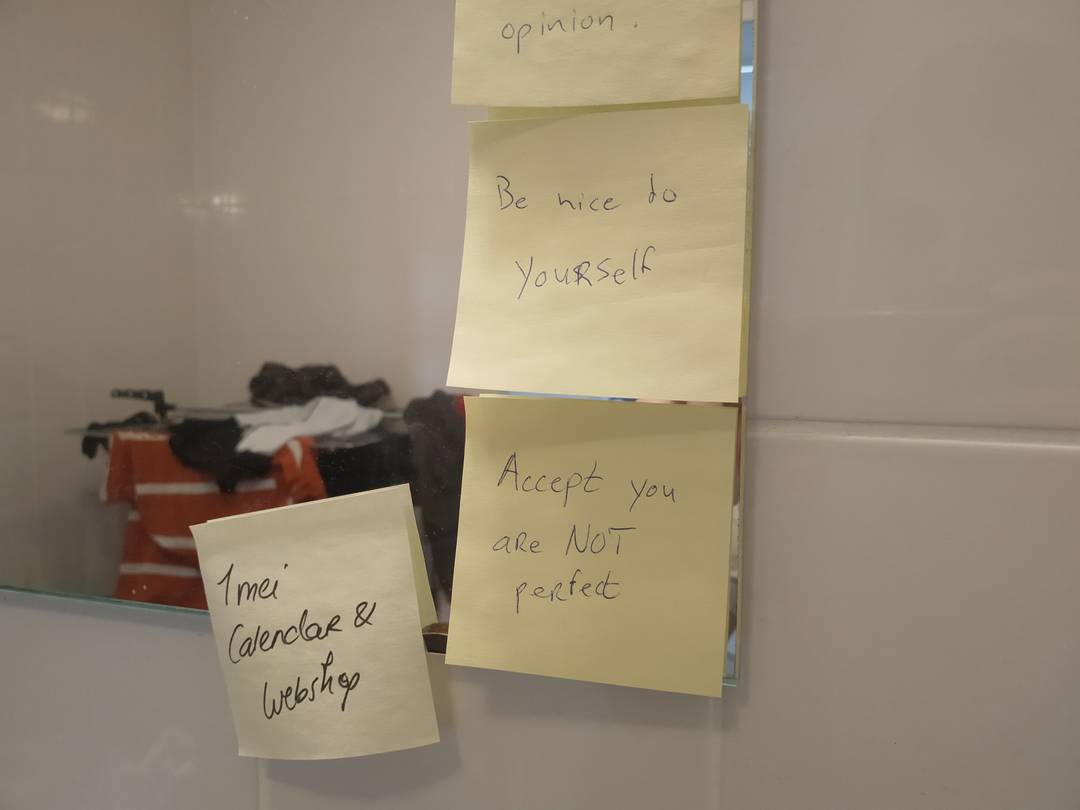 opinion.
Be nice to
yourself
Accept you
are NOT
perfect
1 mei
Calendar &
webshop